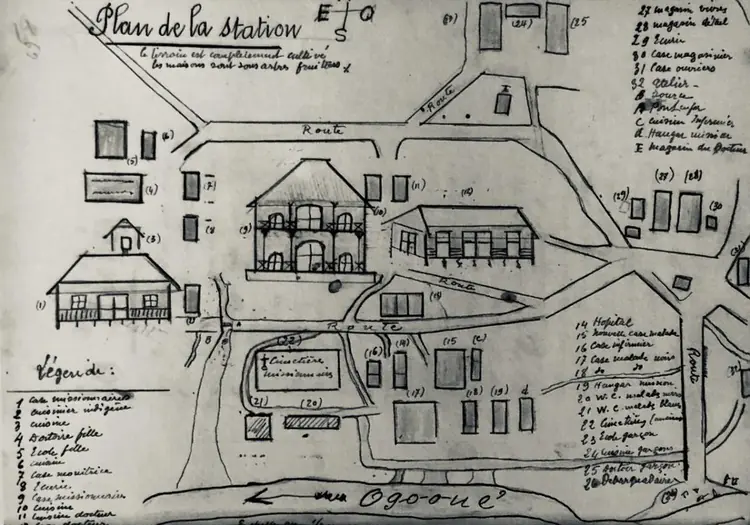 Plan de la station
le terrain est complètement cultivé
les maisons sont sous arbres fruitiers
E O
S
Route
Route
Route
Route
Route
(1)
(3)
(4)
(5)
(6)
(7)
(8)
(9)
(10)
(11)
(15)
(16)
(17)
(18)
(19)
(20)
(21)
(22)
(24)
(25
(27)
(28)
(29)
(30
(c)
d
I
B
Cimetière
missionnaires
Ogooué
Légende:
1 Case missionnaire
2 cuisinier indigène
3 cuisine
4 Dortoire fille
5 Ecole fille
6 cuisine
7 case monitrice
8 Ecurie
9 Case missionnaire
10 cuisine
11 Cuisine docteur
14 Hopital
15 Nouvelle case malade
16 Case infirmier
17 Case malade noirs
18 do do
19 Hangar mission
20 W.C. malades noirs
21 W.C. malades blancs
22 Cimetière
23 Ecole garçon
24 Cuisine garçons
25 Dortoir garçon
26 Debarquadaire
27 magasin vivres
28 magasin détail
29 Ecurie
30 Case magasinier
31 Case ouvriers
32 Atelier
B Source
C cuisine Infirmier
d Hangar mission
I magasin du Docteur